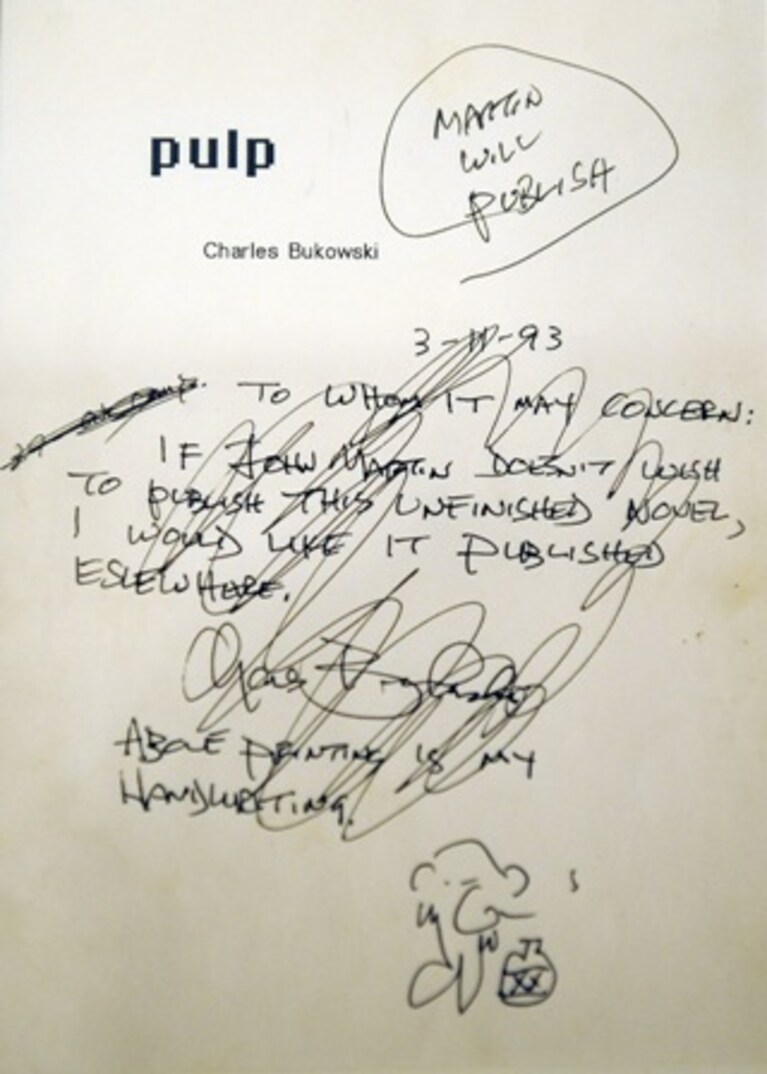 MARTIN
WILL
PUBLISH
pulp
Charles Bukowski
3-11-93
TO WHOM IT MAY CONCERN:
IF JOHN MARTIN DOESN'T WISH
TO PUBLISH THIS UNFINISHED NOVEL,
I WOULD LIKE IT PUBLISHED
ESLEWHERE.
Charles Bukowski
ABOVE PRINTING IS MY
HANDWRITING.
XX